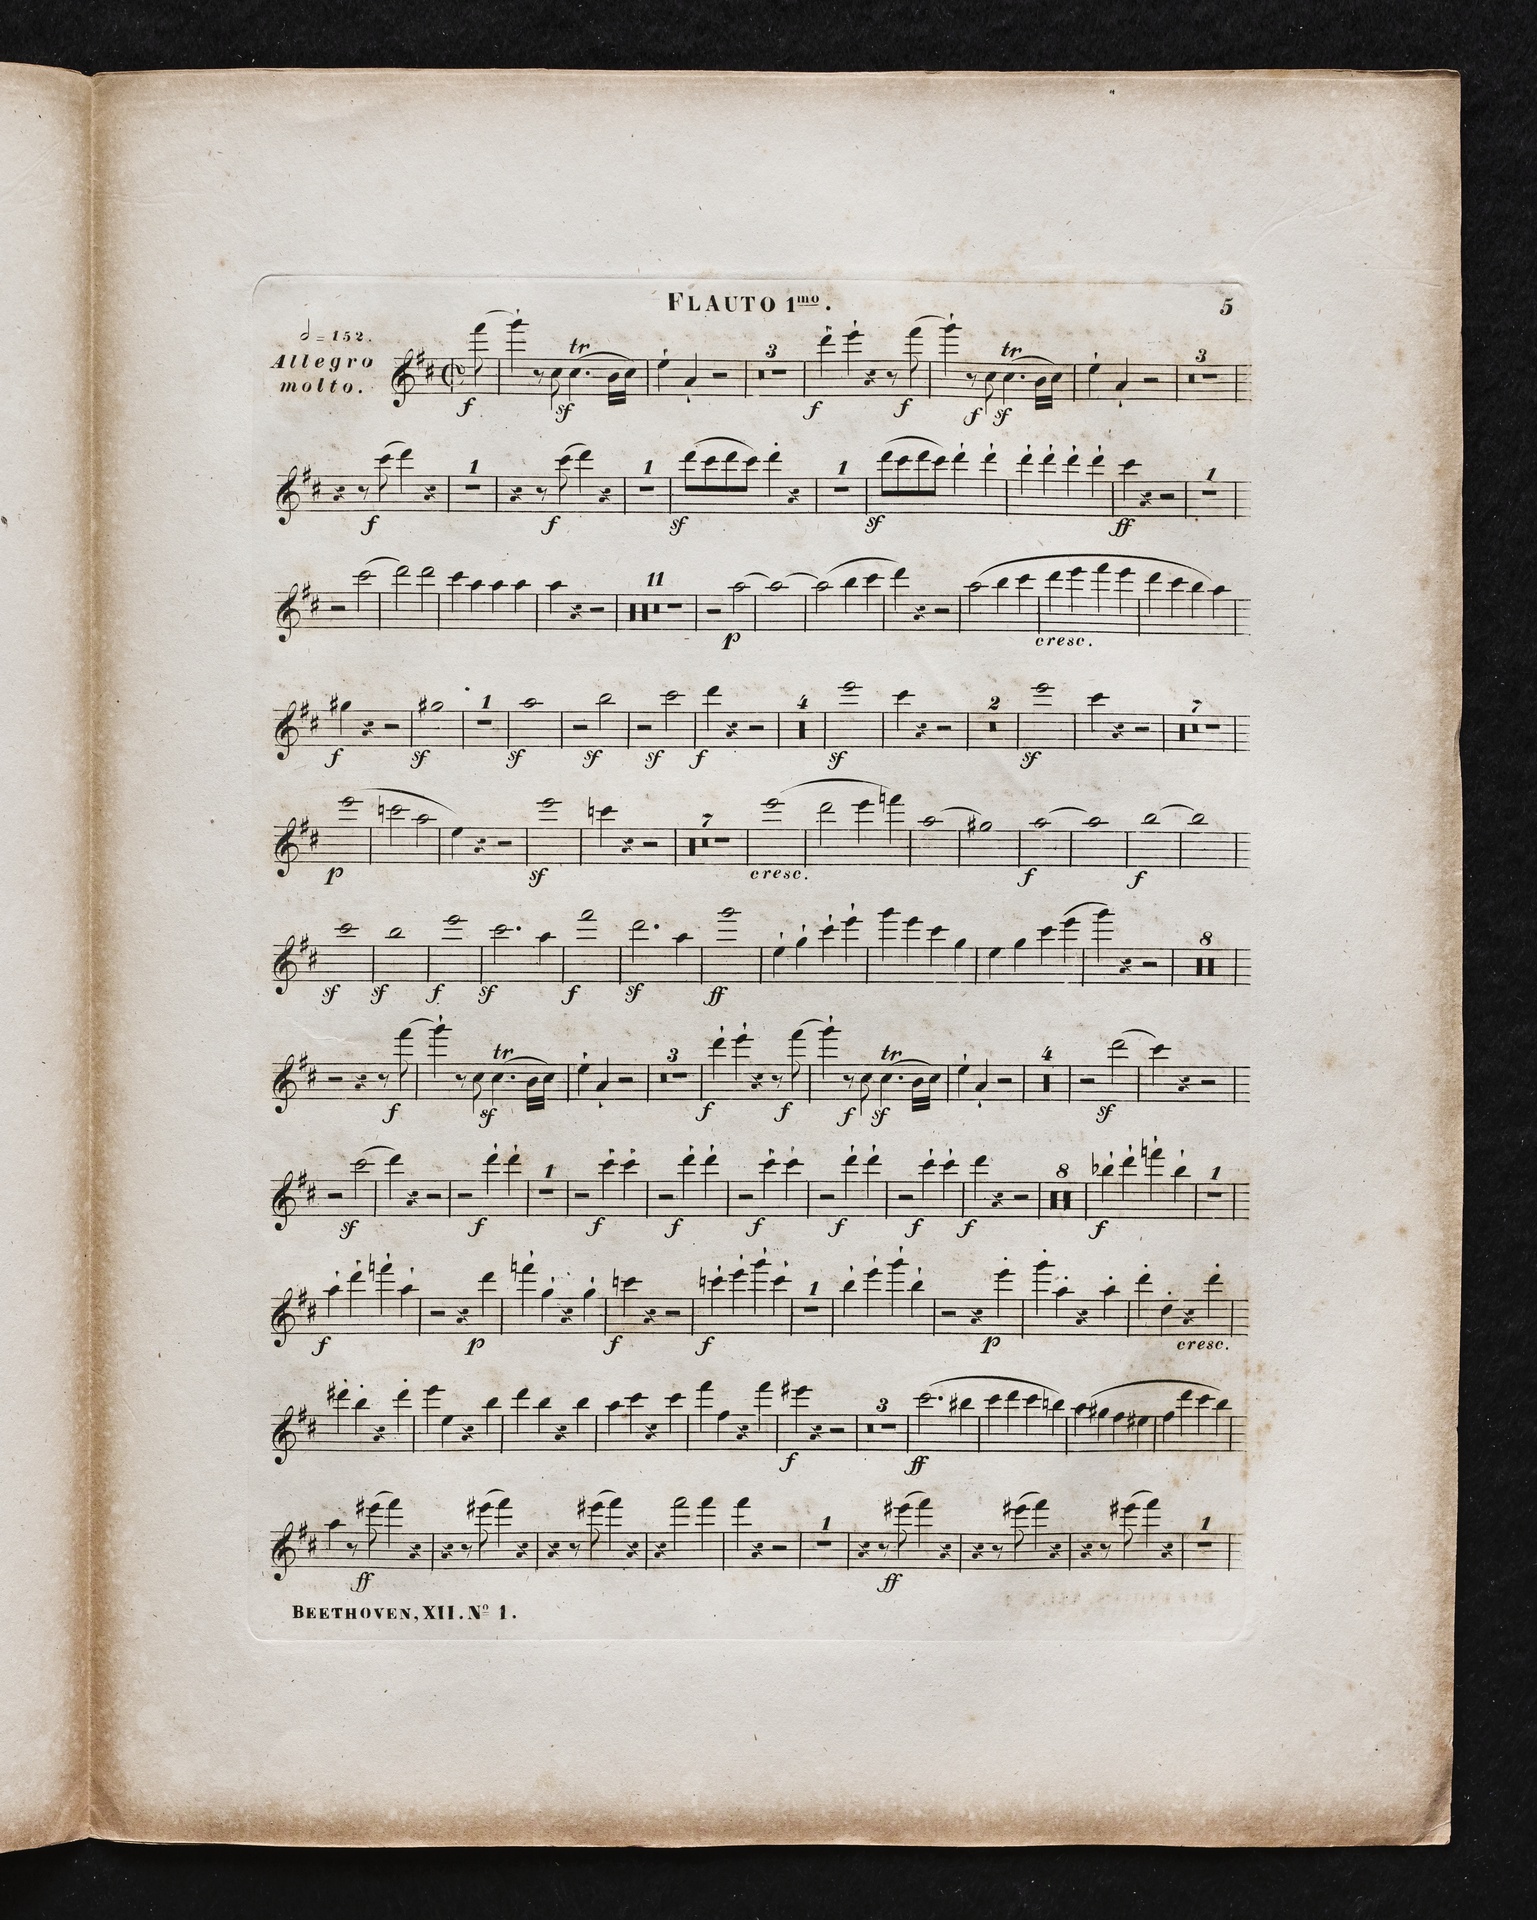 FLAUTO 1mo.
5
= 152.
Allegro
molto.
tr 3 tr 3
f sf f f f sf
1 1 1 1
f f sf sf ff
11
p cresc.
1 4 2 7
f sf sf sf sf f sf sf
7
p sf cresc. f f
8
sf sf f sf f sf ff
tr 3 tr 4
f sf f f f sf sf
1 8 1
sf f f f f f f f f
1
f p f f p cresc.
3
f ff
1 1
ff ff
BEETHOVEN, XII. No 1.